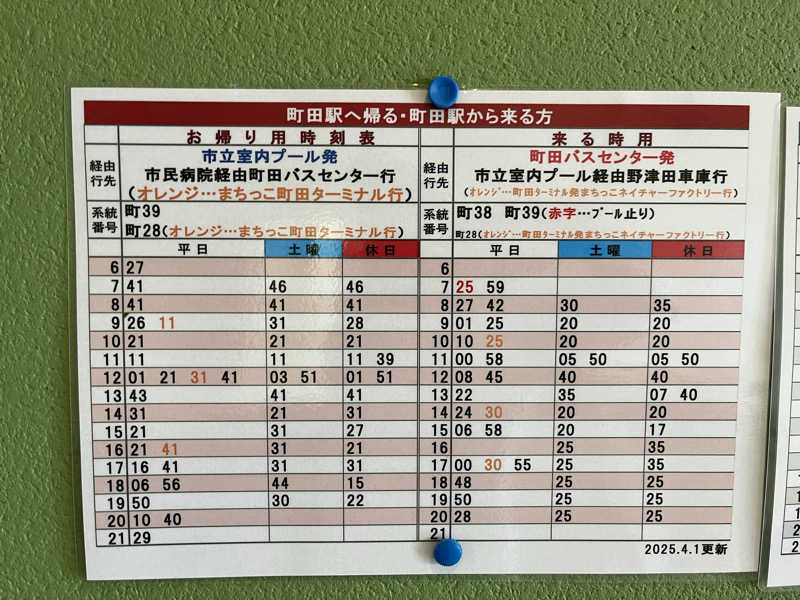 町田駅へ帰る・町田駅から来る方
お帰り用時刻表 来る時用
経由行先 市立室内プール発
市民病院経由町田バスセンター行
(オレンジ…まちっこ町田ターミナル行)
経由行先 町田バスセンター発
市立室内プール経由野津田車庫行
(オレンジ…町田ターミナル発まちっこネイチャーファクトリー行)
系統番号 町39
町28(オレンジ…まちっこ町田ターミナル行)
系統番号 町38 町39(赤字…プール止り)
町28(オレンジ…町田ターミナル発まちっこネイチャーファクトリー行)
平日 土曜 休日 平日 土曜 休日
6 27 6
7 41 46 46 7 25 59
8 41 41 41 8 27 42 30 35
9 26 11 31 28 9 01 25 20 20
10 21 21 21 10 10 25 20 20
11 11 11 11 39 11 00 58 05 50 05 50
12 01 21 31 41 03 51 01 51 12 08 45 40 40
13 43 41 41 13 22 35 07 40
14 31 21 31 14 24 30 20 20
15 21 31 27 15 06 58 20 17
16 21 41 31 21 16 25 35
17 16 41 31 31 17 00 30 55 25 35
18 06 56 44 15 18 48 25 25
19 50 30 22 19 50 25 25
20 10 40 20 28 25 25
21 29 21
2025.4.1更新